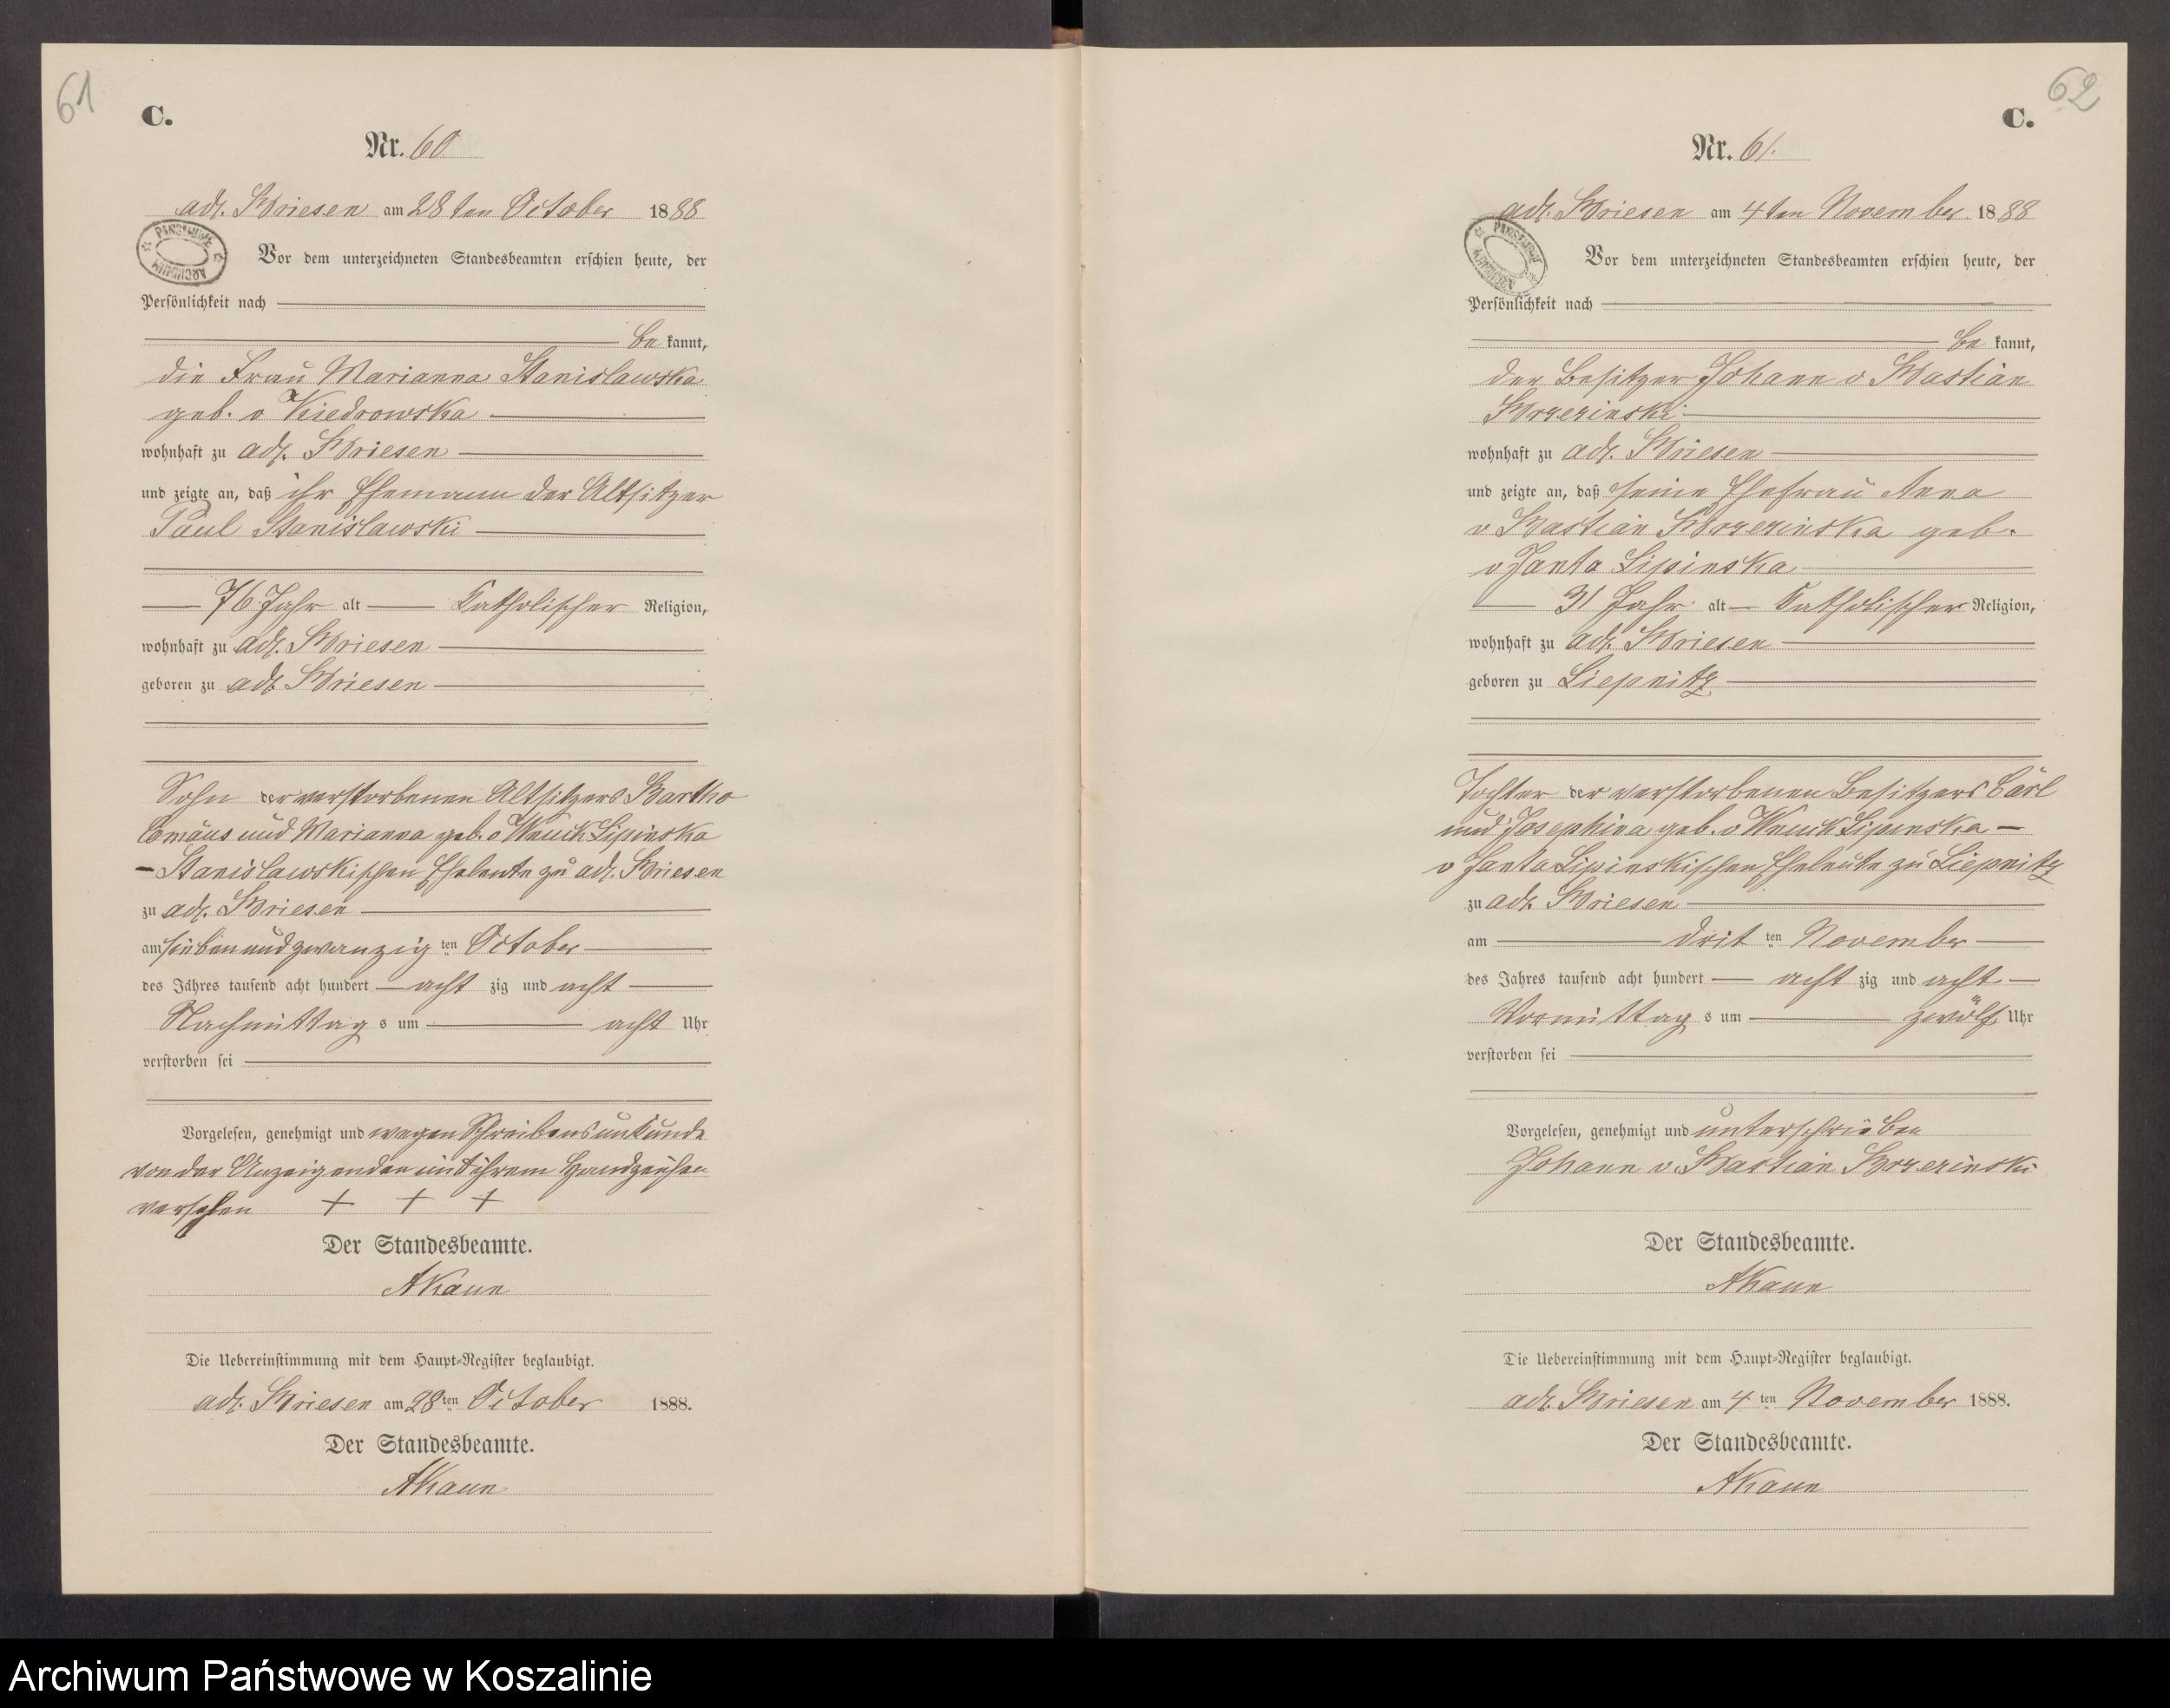 61
C.
Nr. 60
adl. Briesen am 28ten October 1888
PAŃSTWOWE ARCHIWUM
Vor dem unterzeichneten Standesbeamten erschien heute, der
Persönlichkeit nach
be kannt,
die Frau Marianna Stanislawska
geb. v Kiedrowska
wohnhaft zu adl. Briesen
und zeigte an, daß ihr Ehemann der Altsitzer
Paul Stanislawski
76 Jahr alt Katholischer Religion,
wohnhaft zu adl. Briesen
geboren zu adl Briesen
Sohn der verstorbenen Altsitzers Bartho
lomäus und Marianna geb. v Wnuck Lipinska
– Stanislawskischen Eheleute zu adl. Briesen
zu adl. Briesen
am sieben und zwanzig ten October
des Jahres tausend acht hundert acht zig und acht
Nachmittag s um acht Uhr
verstorben sei
Vorgelesen, genehmigt und wegen Schreibensunkunde
von der Anzeigenden mit ihrem Handzeichen
versehen + + +
Der Standesbeamte.
AKaun
Die Uebereinstimmung mit dem Haupt-Register beglaubigt.
adl. Briesen am 28ten October 1888.
Der Standesbeamte.
AKaun
62
C.
Nr. 61.
adl. Briesen am 4ten November 1888
PAŃSTWOWE ARCHIWUM
Vor dem unterzeichneten Standesbeamten erschien heute, der
Persönlichkeit nach
be kannt,
der Besitzer Johann v Bastian
Brzezinski
wohnhaft zu adl. Briesen
und zeigte an, daß seine Ehefrau Anna
v Bastian Brzezinska geb.
v Janta Lipinska
31 Jahr alt – Katholischer Religion,
wohnhaft zu adl. Briesen
geboren zu Liepnitz
Tochter der verstorbenen Besitzers Carl
und Josephina geb. v Wnuck Lipinska –
v Janta Lipinskischen Eheleute zu Liepnitz
zu adl. Briesen
am drit ten November
des Jahres tausend acht hundert acht zig und acht
Vormittag s um zwölf Uhr
verstorben sei
Vorgelesen, genehmigt und unterschrieben
Johann v. Bastian Brzezinski
Der Standesbeamte.
AKaun
Die Uebereinstimmung mit dem Haupt-Register beglaubigt.
adl. Briesen am 4 ten November 1888.
Der Standesbeamte.
AKaun
Archiwum Państwowe w Koszalinie